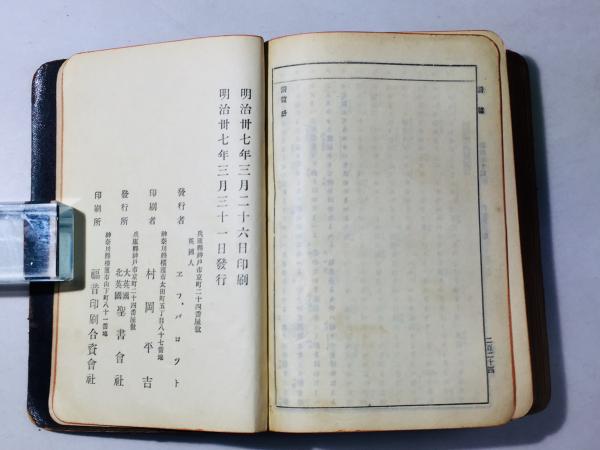 讃歌
讃歌
二百二十四
明治卅七年三月二十六日印刷
明治卅七年三月三十一日發行
兵庫縣神戸市京町二十四番屋敷
英國人
發行者 エフ、パロット
神奈川縣橫濱市太田町五丁目八十七番地
印刷者 村岡平吉
兵庫縣神戸市京町二十四番屋敷
發行所 大英國北英國聖書會社
神奈川縣橫濱市山下町八十一番地
印刷所 福音印刷合資會社